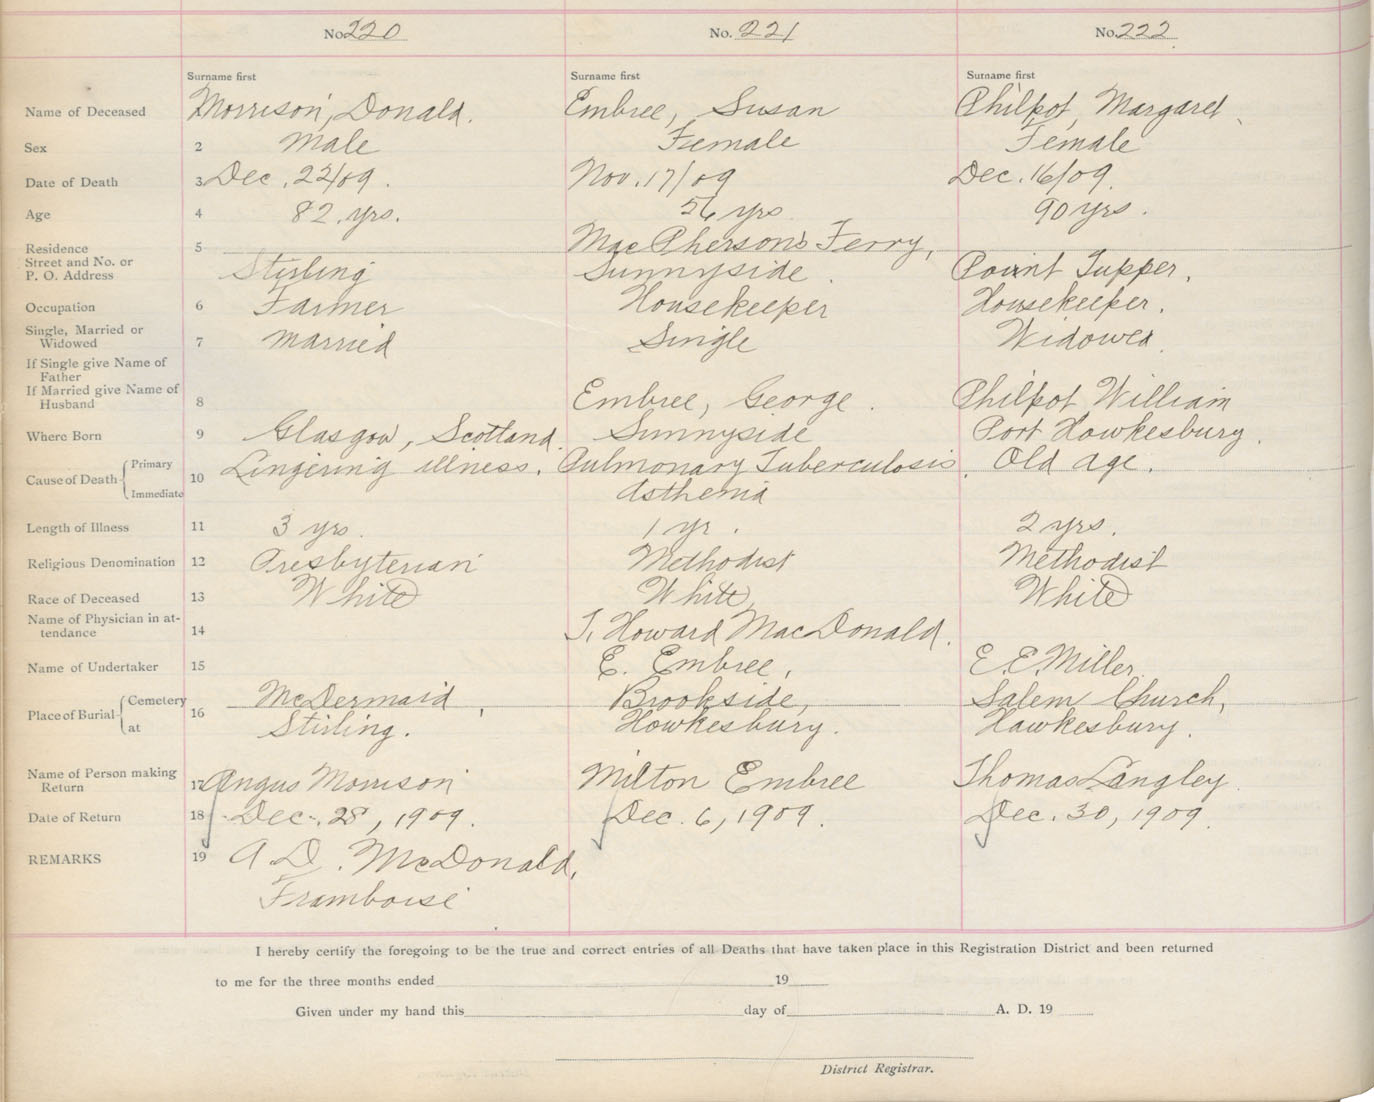 No. 220 No. 221 No. 222
Surname first Surname first Surname first
Name of Deceased Morrison, Donald. Embree, Susan Philpot, Margaret.
Sex 2 Male Female Female
Date of Death 3 Dec. 22/09. Nov. 17/09 Dec. 16/09.
Age 4 82 yrs. 56 yrs 90 yrs.
Residence 5 MacPherson's Ferry,
Street and No. or
P. O. Address Stirling Sunnyside. Point Tupper.
Occupation 6 Farmer Housekeeper Housekeeper.
Single, Married or
Widowed 7 Married Single Widowed.
If Single give Name of
Father
If Married give Name of
Husband 8 Embree, George. Philpot William
Where Born 9 Glasgow, Scotland. Sunnyside Port Hawkesbury.
Cause of Death Primary 10 Lingering illness. Pulmonary Tuberculosis. Old age.
Immediate Asthenia
Length of Illness 11 3 yrs. 1 yr. 2 yrs.
Religious Denomination 12 Presbyterian Methodist Methodist
Race of Deceased 13 White White White
Name of Physician in at-
tendance 14 T. Howard MacDonald.
Name of Undertaker 15 E. Embree. E. E. Miller
Place of Burial Cemetery 16 McDermaid, Brookside, Salem Church,
at Stirling. Hawkesbury. Hawkesbury.
Name of Person making
Return 17 Angus Morrison Milton Embree Thomas Langley.
Date of Return 18 Dec. 28, 1909. Dec. 6, 1909. Dec. 30, 1909.
REMARKS 19 A. D. McDonald,
Framboise
I hereby certify the foregoing to be the true and correct entries of all Deaths that have taken place in this Registration District and been returned
to me for the three months ended 19
Given under my hand this day of A. D. 19
District Registrar.